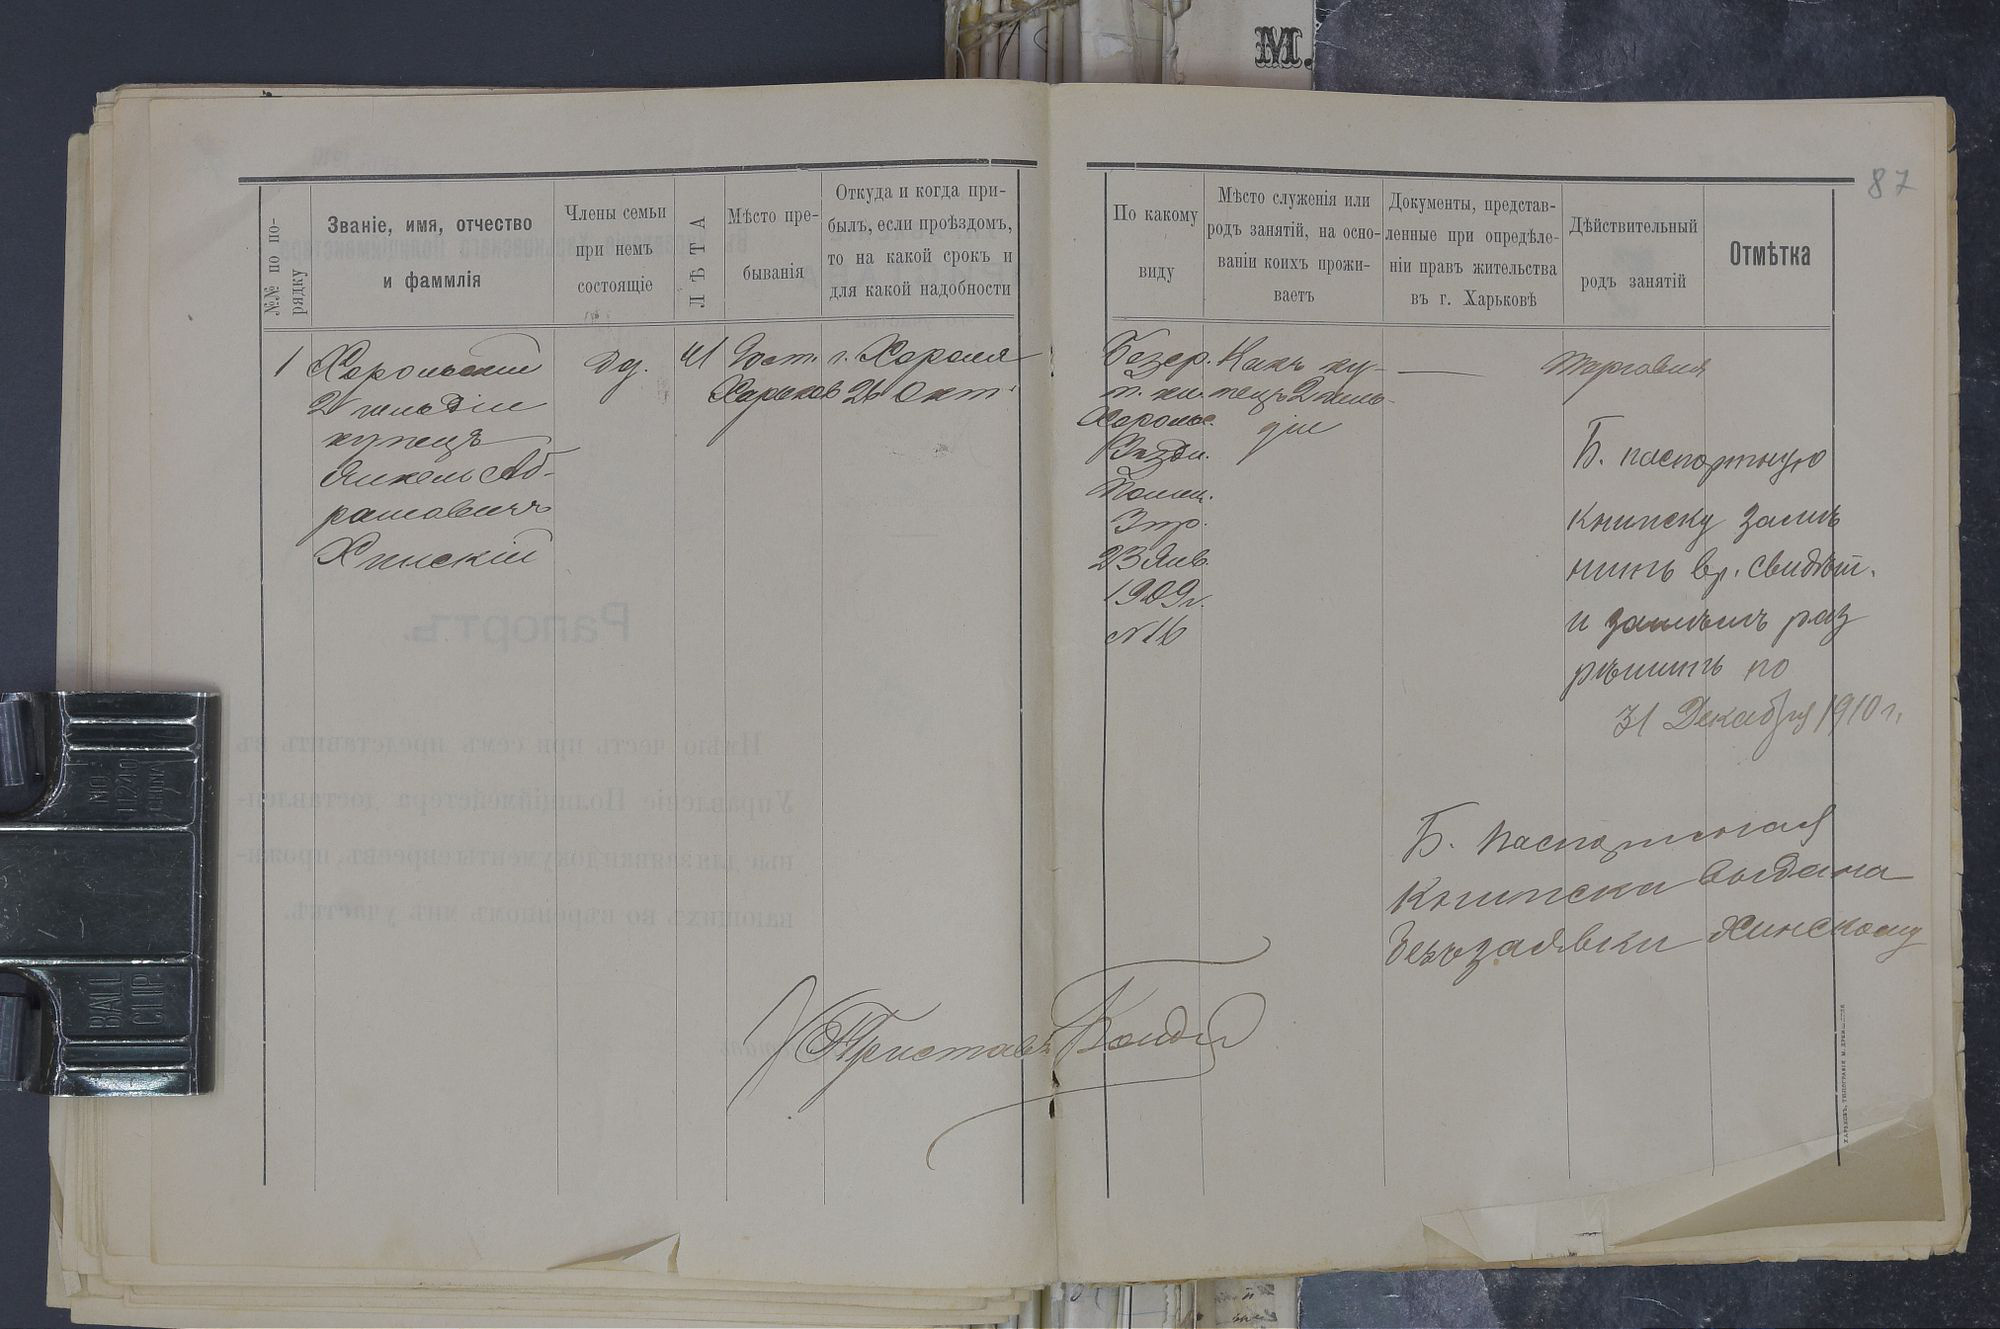 М.
87
№№ по порядку
Званіе, имя, отчество
и фаммлія
Члены семьи
при немъ
состоящіе
ЛѢТА
Мѣсто пре-
быванія
Откуда и когда при-
былъ, если проѣздомъ,
то на какой срокъ и
для какой надобности
По какому
виду
Мѣсто служенія или
родъ занятій, на осно-
ваніи коихъ прожи-
ваетъ
Документы, представ-
ленные при опредѣле-
ніи правъ жительства
въ г. Харьковѣ
Дѣйствительный
родъ занятій
Отмѣтка
1
Хорольскій
2 гильдіи
купецъ
Янкель Аб-
рамовичъ
Хинскій
41
Гост.
Харьков
г. Хороля
26 Окт.
Безср.
п. кн.
Хорольс.
Уѣздн.
23 Янв.
1909 г.
№ 16
Какъ ку-
пецъ 2 гиль-
діи
—
торговля
Б. паспортную
книжку замѣ
нить вр. свидѣт.
и затѣмъ раз
рѣшить по
31 Декабря 1910 г.
Б. паспортная
книжка выдана
безъ заявки Хинскому
Приставъ
Рапортъ.
Имѣю честь при семъ представить въ
Управленіе Полиціймейстера доставлен-
ные для заявки документы евреевъ, прожи-
вающихъ во ввѣренномъ мнѣ участкѣ.
NO. 11240
CHINA
BALL
CLIP